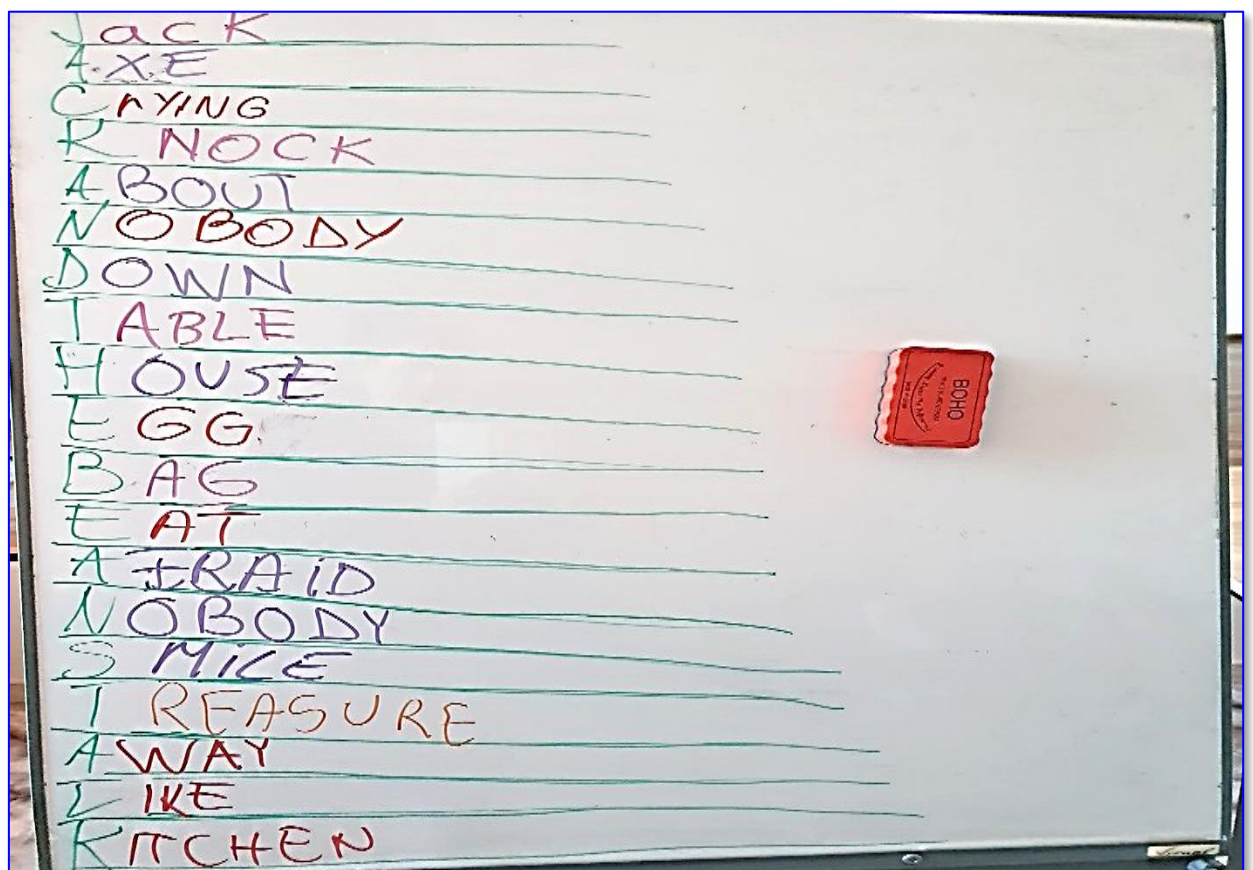 Jack
AXE
CrYING
KNOCK
ABOUT
NOBODY
DOWN
TABLE
HOUSE
EGG
BAG
EAT
AFRAiD
NOBODY
SMiLE
TREASURE
AWAY
LIKE
KITCHEN
BOHO